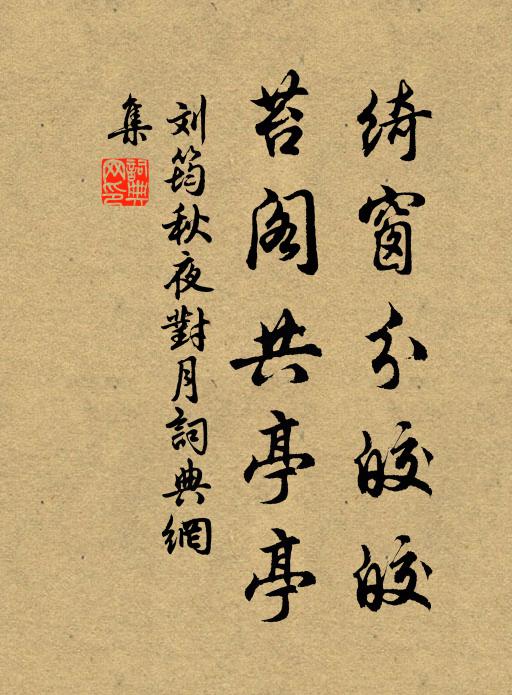 綺窗分皎皎
苔阁共亭亭
刘筠秋夜對月詞典網
集
詞典
网印